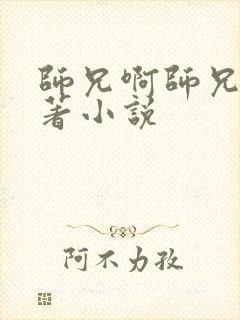 師兄啊師兄
著小說
阿不力孜